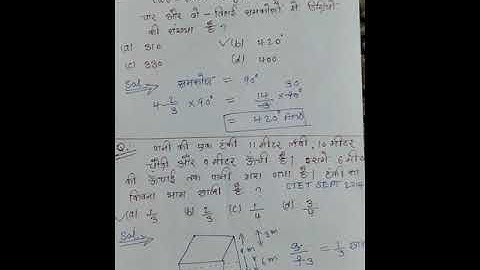 चार और दो - तिहाई समकोणों में डिग्रियों
की संख्या है ?
(a) 310 ✓(b) 420°
(c) 330 (d) 400
Sol. समकोण = 90°
4 2/3 × 90° = 14/3 × 90° 30
= 420° डिग्री
Q. पानी की एक टंकी 11 मीटर लंबी, 10 मीटर
चौड़ी और 9 मीटर ऊँची है । इसमें 6 मीटर
की ऊंचाई तक पानी भरा गया है । टंकी का
कितना भाग खाली है ? CTET SEPT 2014
✓(a) 1/3 (b) 2/3 (c) 1/4 (d) 3/4
Sol. 3m
6m
= 1/3